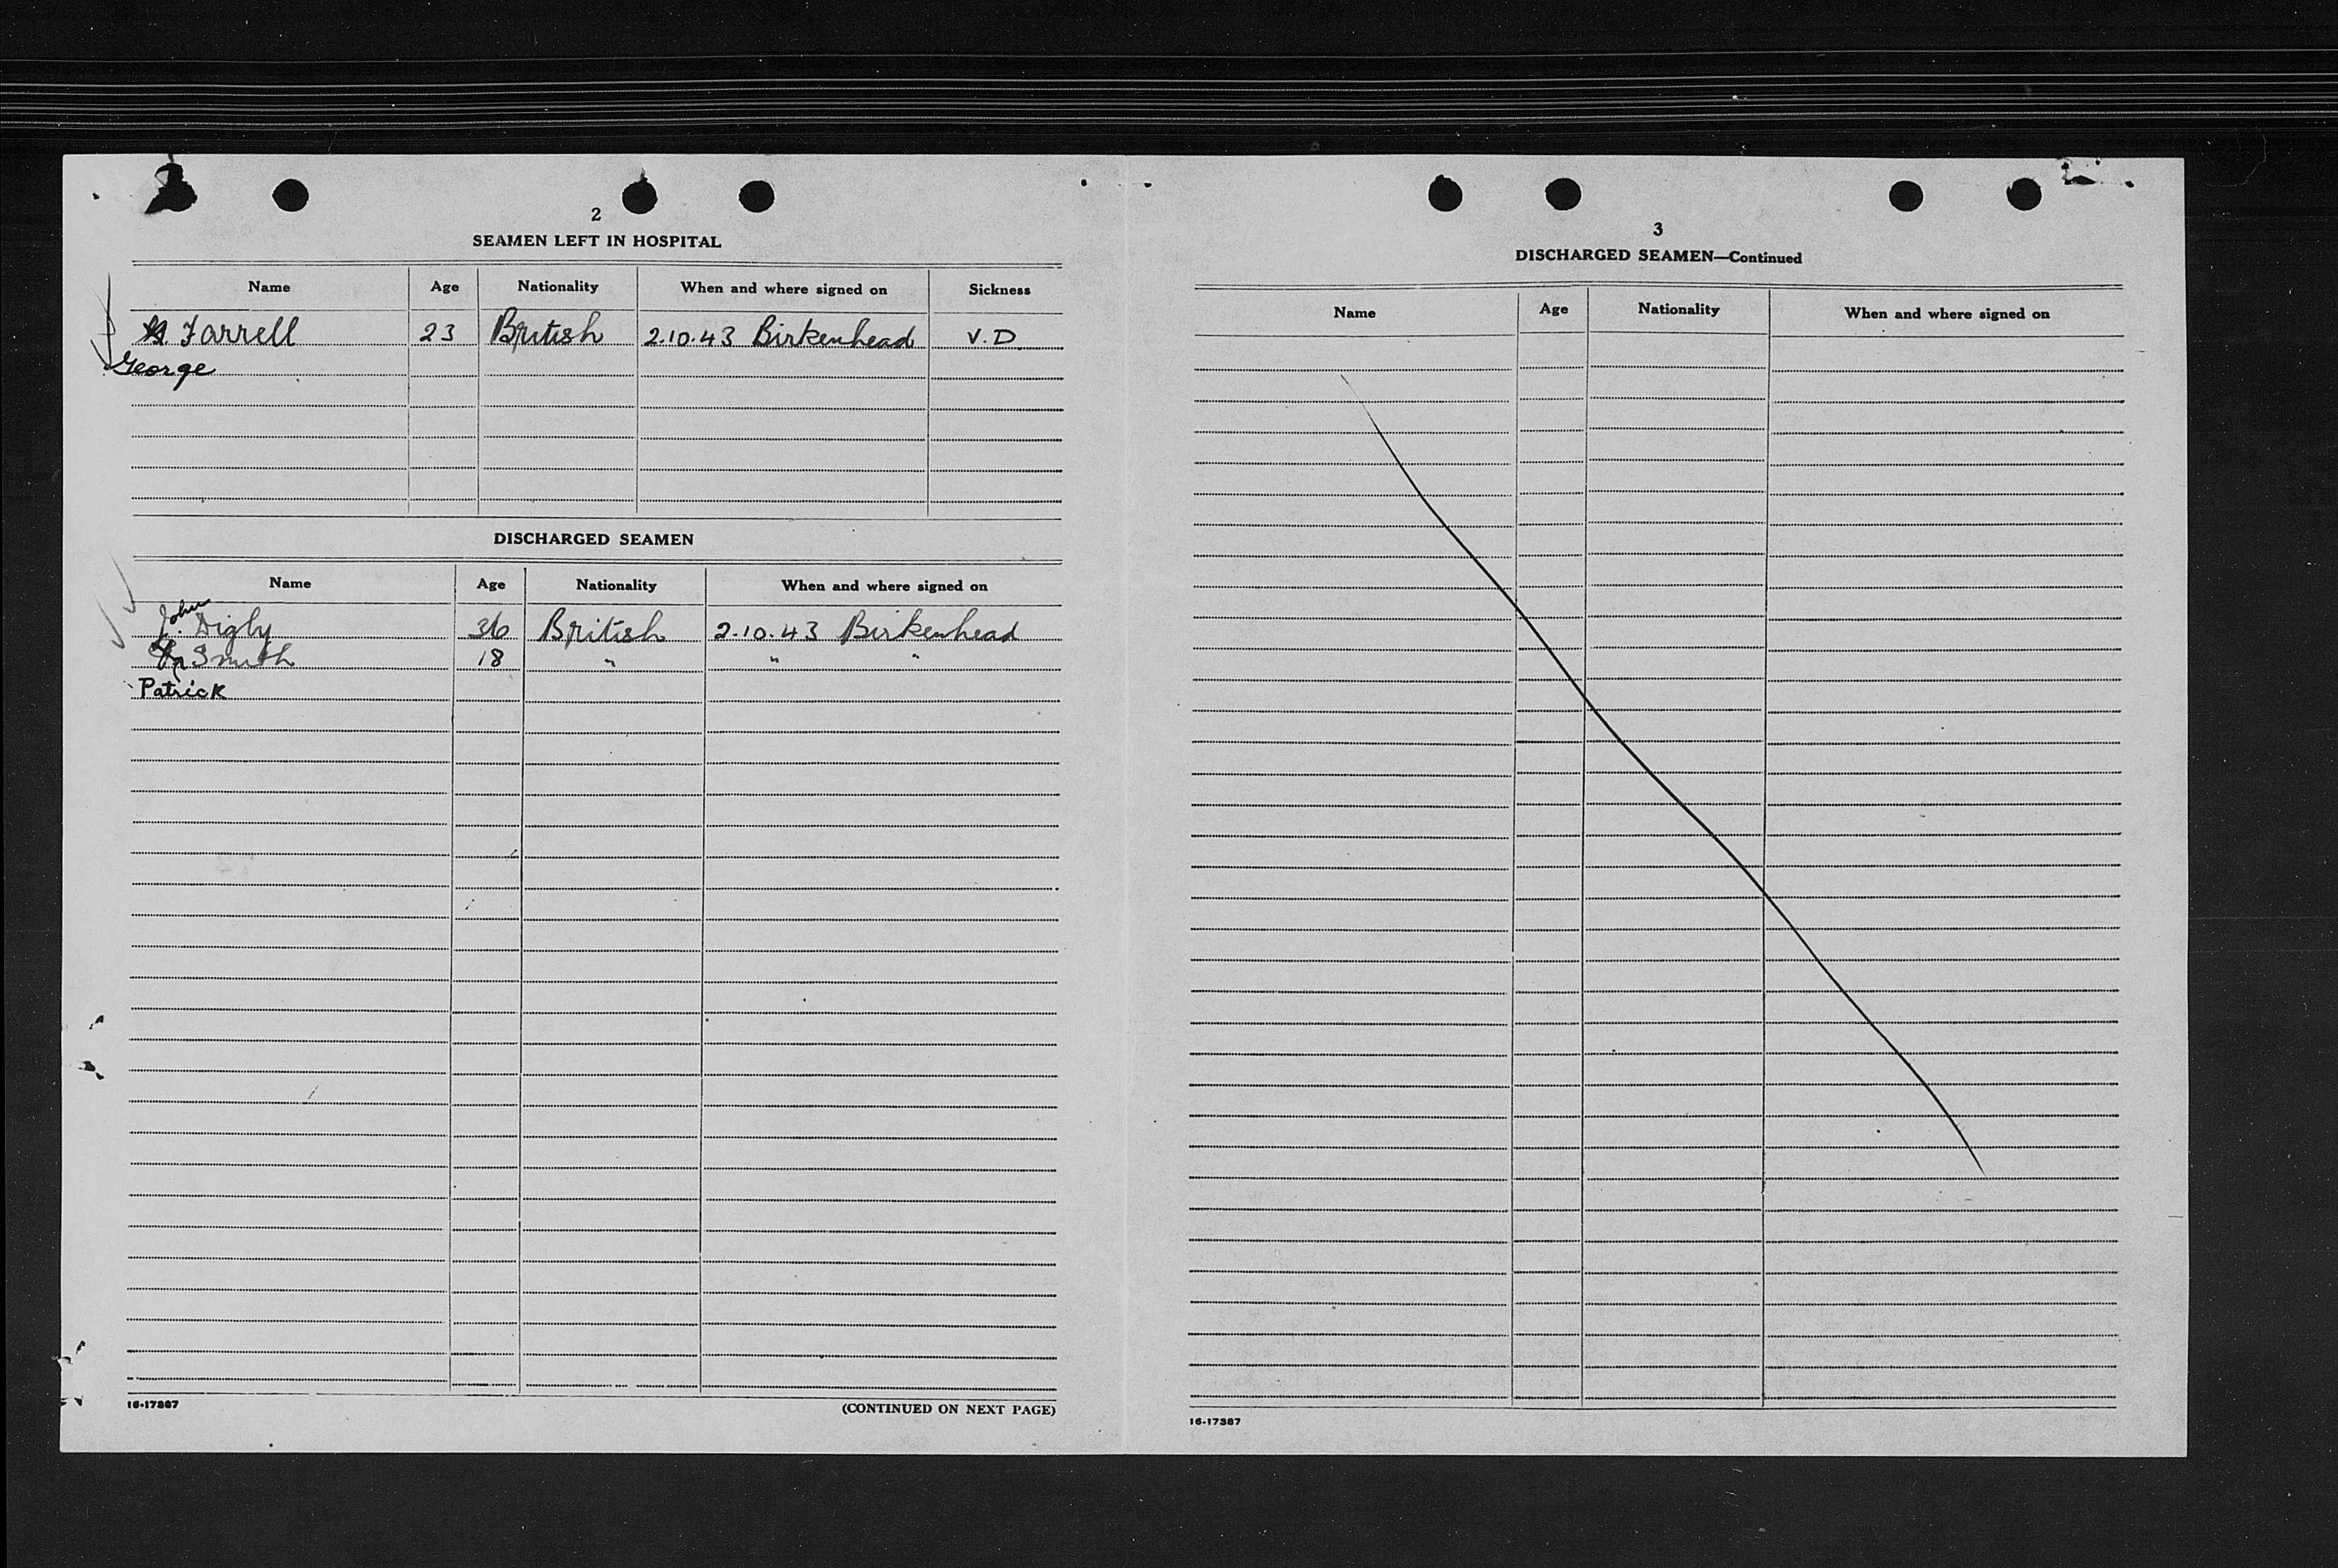 2
SEAMEN LEFT IN HOSPITAL
Name Age Nationality When and where signed on Sickness
Farrell 23 British 2.10.43 Birkenhead V.D
George
DISCHARGED SEAMEN
Name Age Nationality When and where signed on
John
J. Digby 36 British 2.10.43 Birkenhead
Smith 18 " " "
Patrick
16-17387
(CONTINUED ON NEXT PAGE)
3
DISCHARGED SEAMEN—Continued
Name Age Nationality When and where signed on
16-17387